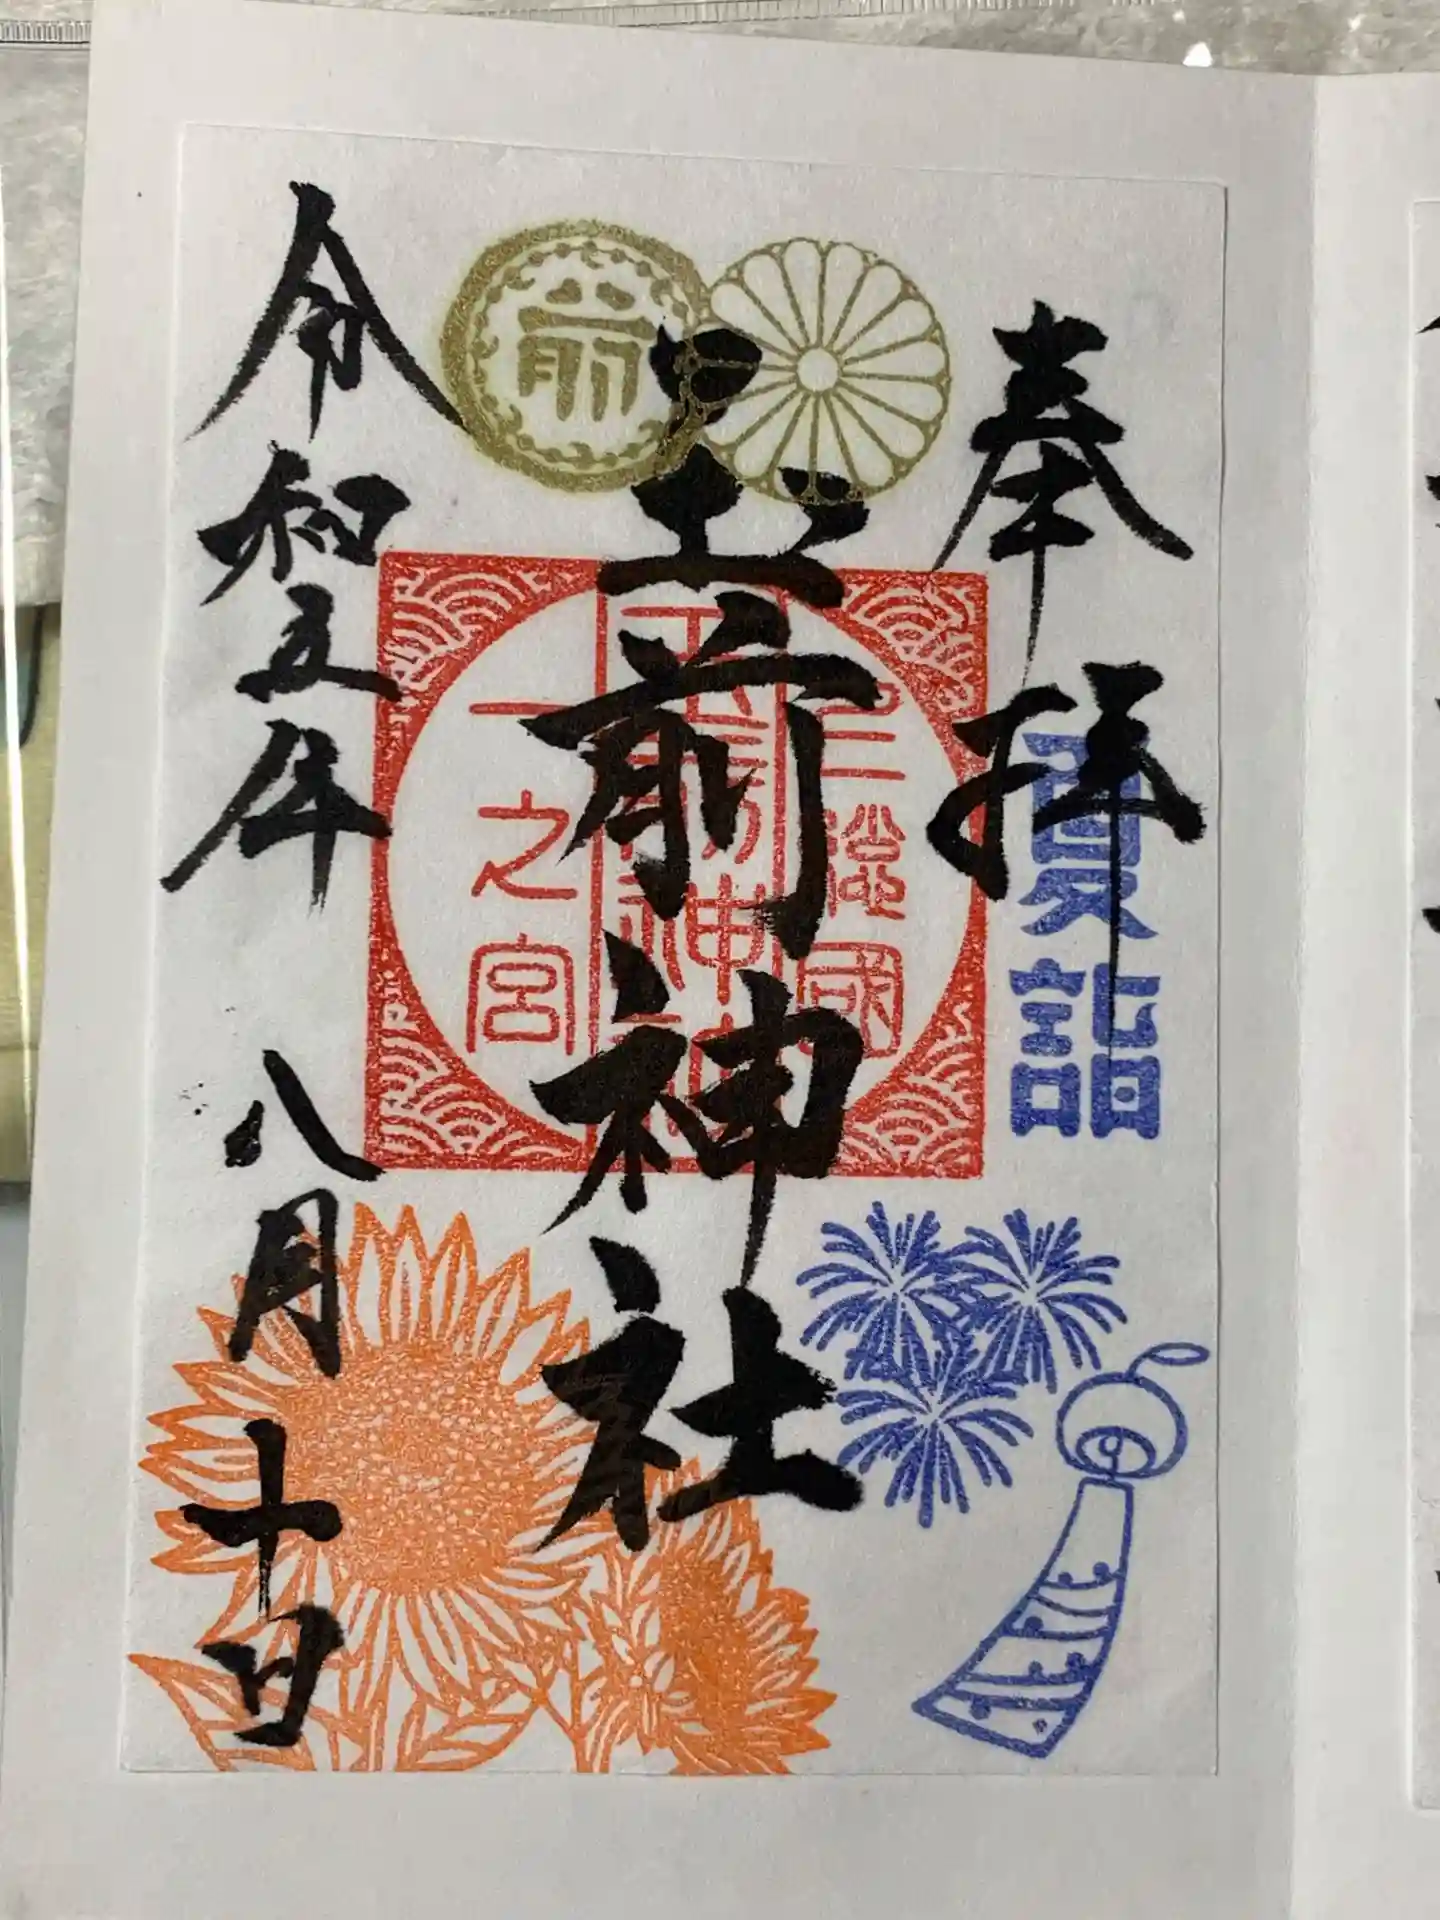 奉拝
夏詣
上總國
玉前神社
一之宮
玉前神社
前
令和五年 八月十日